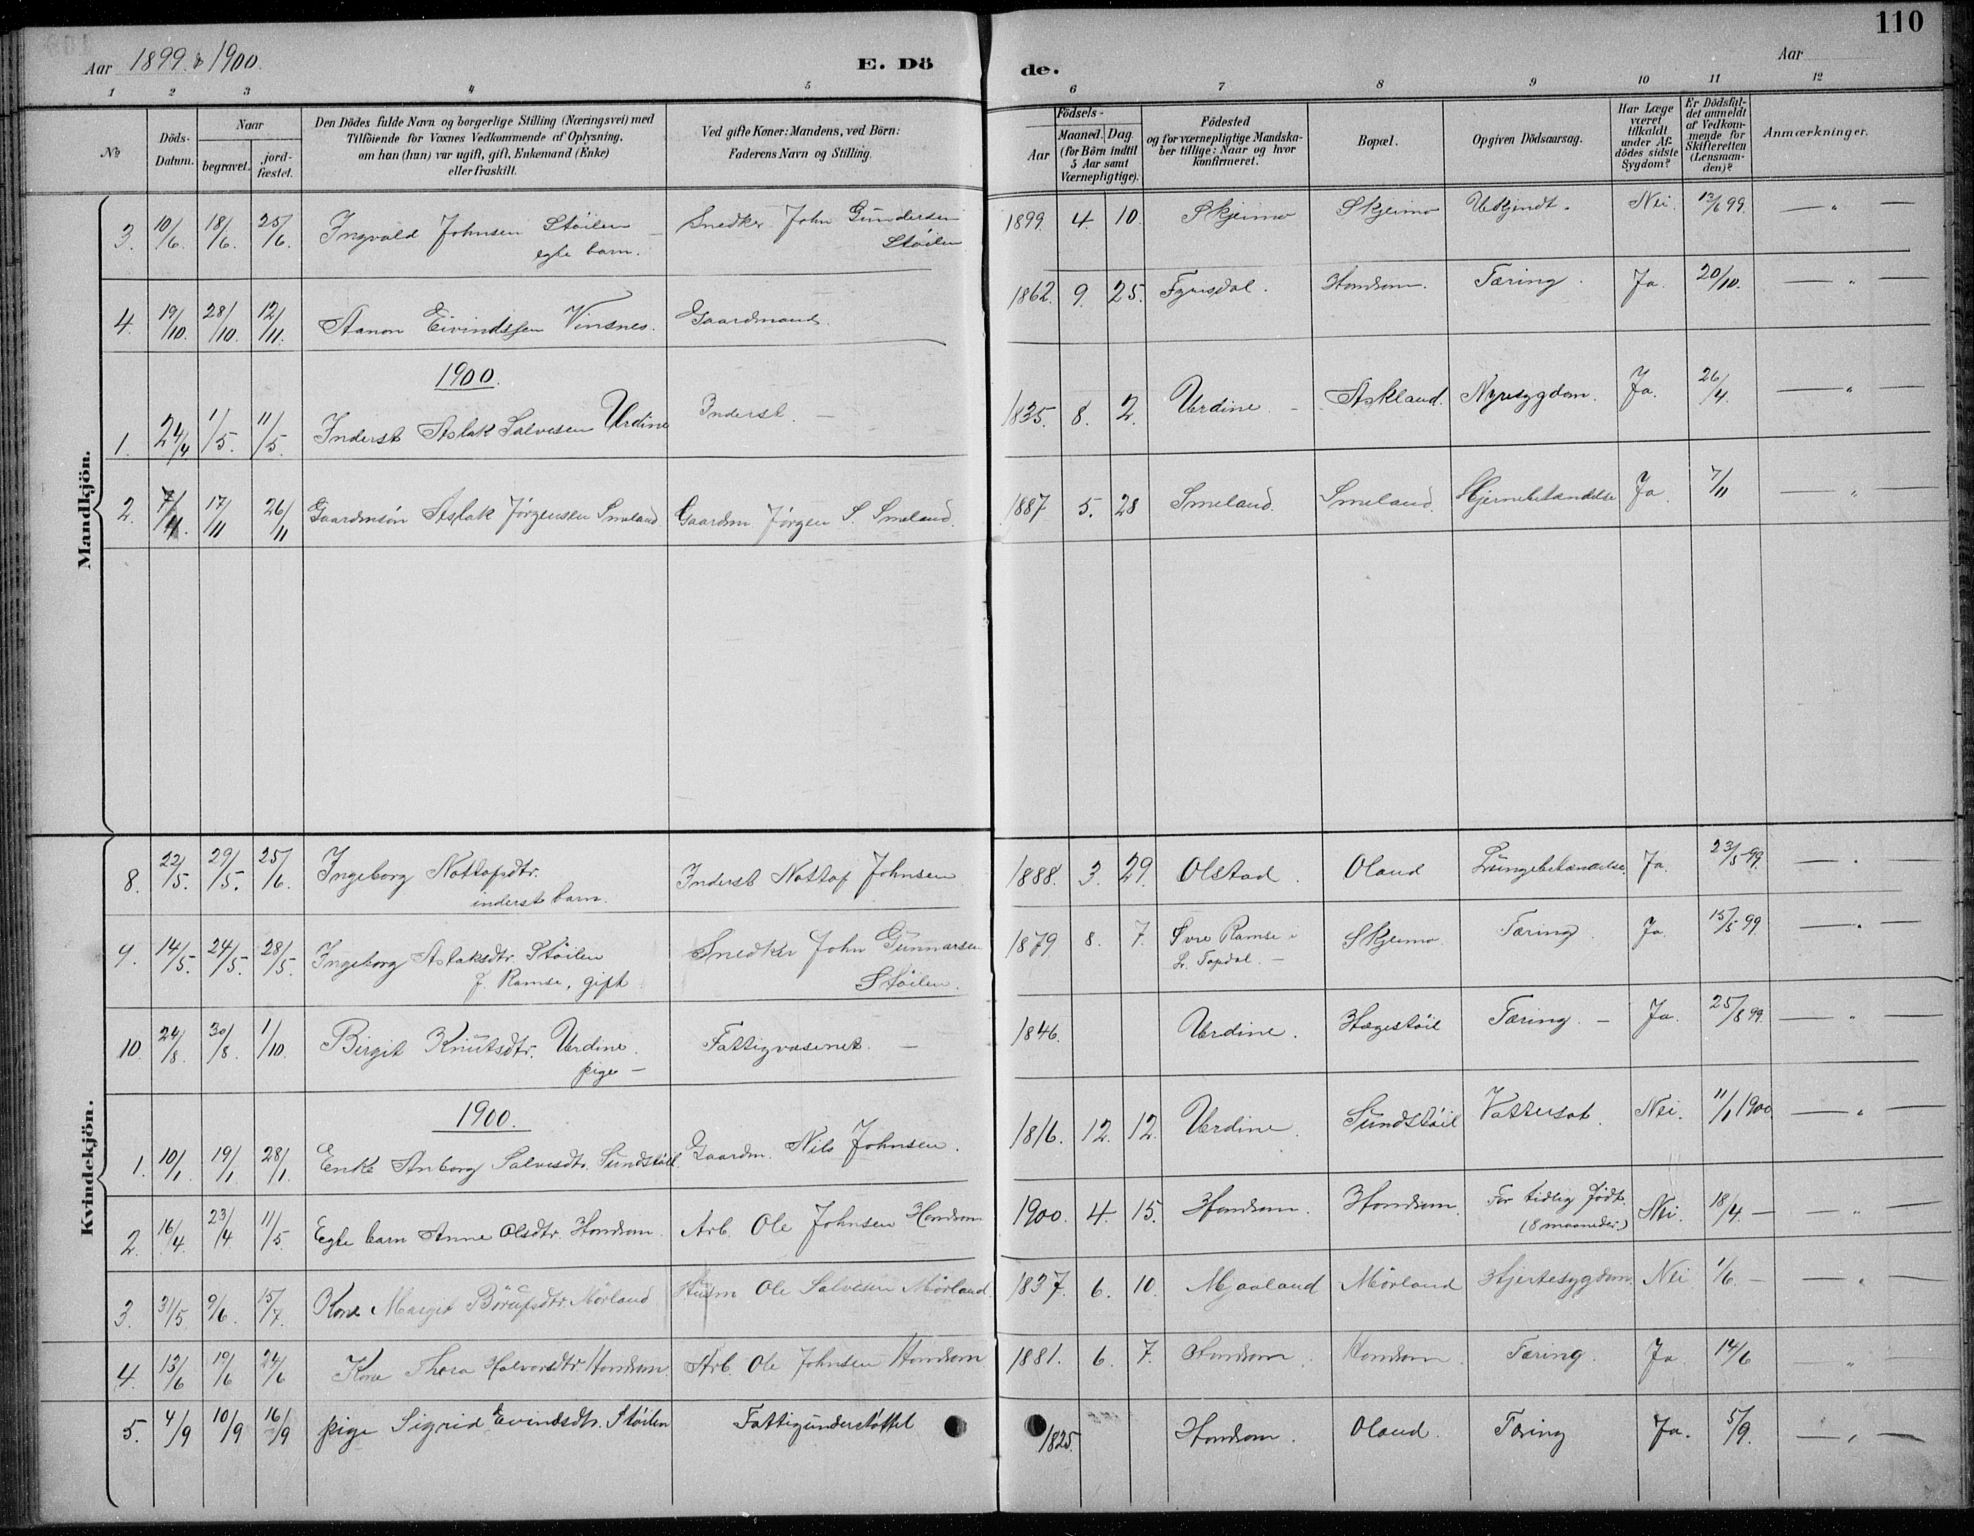 110
Aar 1899 & 1900.
E. Dö
de.
Aar
1 2 3 4 5 6 7 8 9 10 11 12
No
Döds-
Datum.
Naar
begravet.
jord-
fæstet.
Den Dödes fulde Navn og borgerlige Stilling (Næringsvei) med
Tilföiende for Voxnes Vedkommende af Oplysning,
om han (hun) var ugift, gift, Enkemand (Enke)
eller fraskilt.
Ved gifte Koner: Mandens, ved Börn:
Faderens Navn og Stilling.
Födsels-
Aar
Maaned. Dag.
(for Börn indtil
5 Aar samt
Værnepligtige).
Födested
og for værnepligtige Mandska-
ber tillige: Naar og hvor
konfirmeret.
Bopæl.
Opgiven Dödsaarsag.
Har Læge
været
tilkaldt
under Af-
dödes sidste
Sygdom?
Er Dödsfal-
det anmeldt
af Vedkom-
mende for
Skifteretten
(Lensman-
den)?
Anmærkninger.
Mandkjön.
3. 10/6. 18/6. 25/6. Ingvald Johnsen Stöilen Snedker John Gundersen 1899. 4. 10. Skjeimo Skjeimo Ukjendt. Nei. 13/6 99. — " —
egte barn. Stöilen
4. 19/10. 28/10. 12/11. Aanon Eivindssen Vinsnes. Gaardmand. 1862. 9. 25. Fyresdal. Homdrom. Tæring. Ja. 20/10. — " —
1900.
1. 24/4 1/5. 11/5. Inderst Aslak Salvesen Urdine Inderst — 1835. 8. 2. Uerdine. Askland. Nyresygdom. Ja. 26/4. — " —
2. 7/11. 17/11 26/11 Gaardmsön Aslak Jörgensen Smeland Gaardm Jörgen S. Smeland. 1887 5. 28 Smeland. Smeland. Hjernebetændelse Ja. 7/11 — " —
Kvindekjön.
8. 22/5. 29/5. 25/6. Ingeborg Nottofsdtr. Inderst Nottof Johnsen 1888. 3. 29. Olstad. Oland Lungebetændelse. Ja. 23/5 99. — "
inderste barn.
9. 14/5. 24/5. 28/5. Ingeborg Aslaksdtr. Stöilen Snedker John Gunnarsen 1879 8. 7. Övre Ramse Skjeimo. Tæring. Ja. 15/5 99 — " —
f. Ramse, gift Stöilen. Topdal. —
10. 24/8. 30/8. 1/10. Birgit Knutsdtr. Uerdine. Fattigvæsenet — 1846. Uerdine. Hægestöil Tæring. — Ja. 25/8 99. — " —
pige —
1900.
1. 10/1 19/1 28/1. Enke Anborg Salvesdtr. Sundstöil Gaardm. Nils Johnsen. 1816. 12. 12. Uerdine. Sundstöil Vattersot. Nei. 11/1 1900 — " —
2. 16/4. 23/4 11/5. Egte barn Anne Olsdtr. Homdrom. Arb. Ole Johnsen Homdrom 1900. 4. 15. Homdrom. Homdrom. For tidlig födt. Nei. 18/4. —
(8 maaneder.)
3. 31/5. 9/6. 15/7. Kone Marget Mörland Husm Ole Salvesen Mörland. 1837. 6. 10. Mjaaland Mörland Hjertesygdom Nei 1/6. — " —
4. 13/6 19/6 24/6 Kone Thora Halvorsdtr. Homdrom. Arb. Ole Johnsen Homdrom 1881. 6. 7. Homdrom. Homdrom. Tæring. Ja. 14/6 " —
5. 4/9 10/9 16/9 pige Sigrid Evindsdtr. Stöilen Fattigunderstöttet 1825. Homdrom. Oland. Tæring Ja. 5/9. — " —